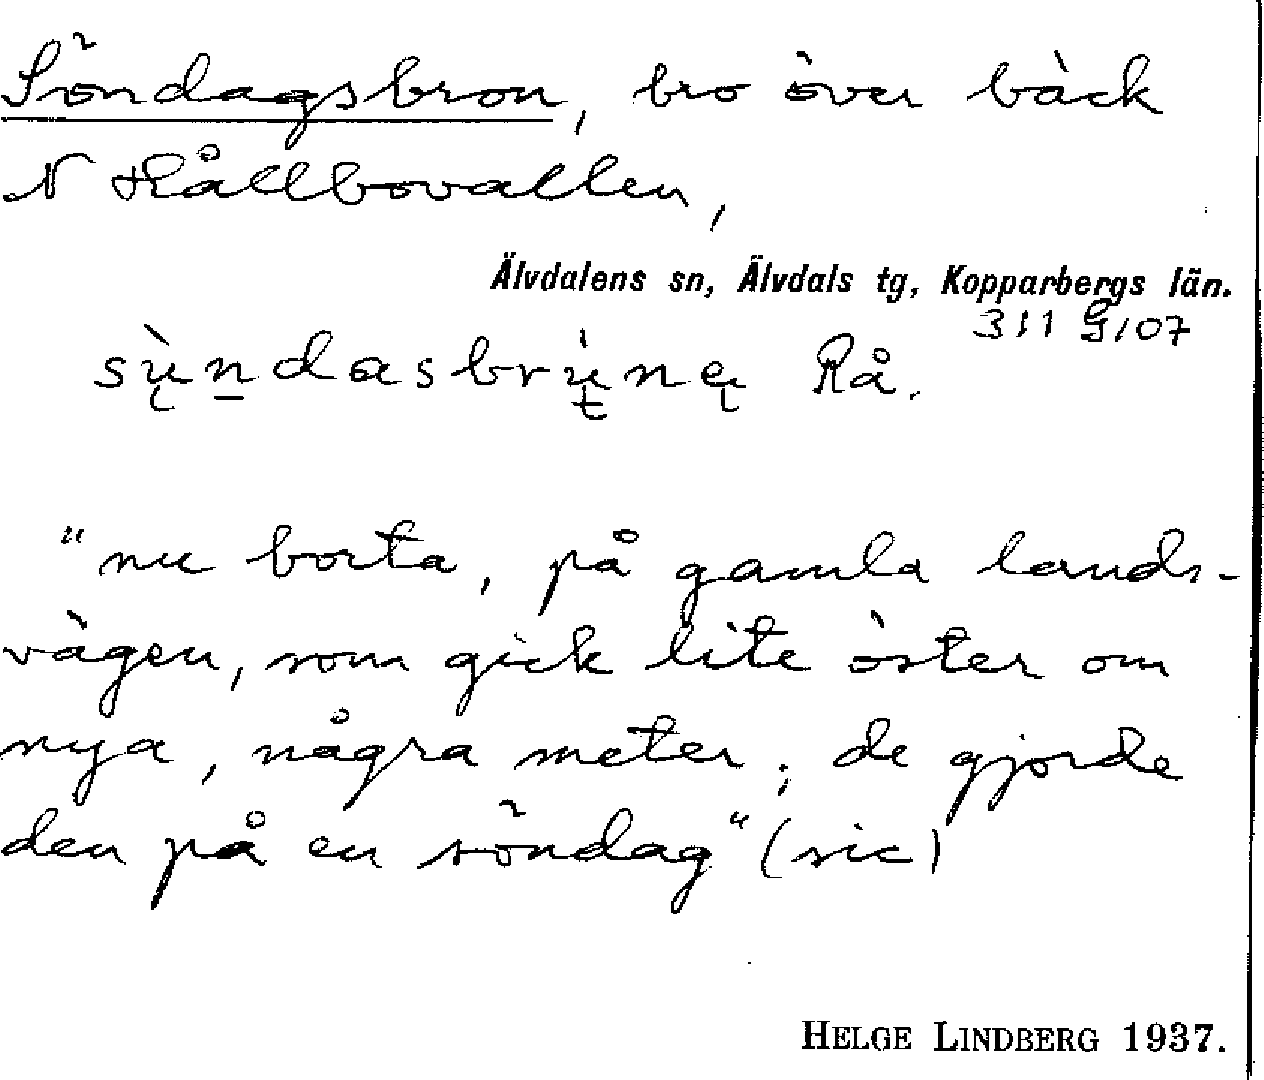 Söndagsbron, bro över bäck
N Hållbovallen,
Älvdalens sn, Älvdals tg, Kopparbergs län.
311 G/07
Rå.
"nu borta, på gamla lands-
vägen, som gick lite öster om
nya, några meter; de gjorde
den på en söndag" (sic)
HELGE LINDBERG 1937.